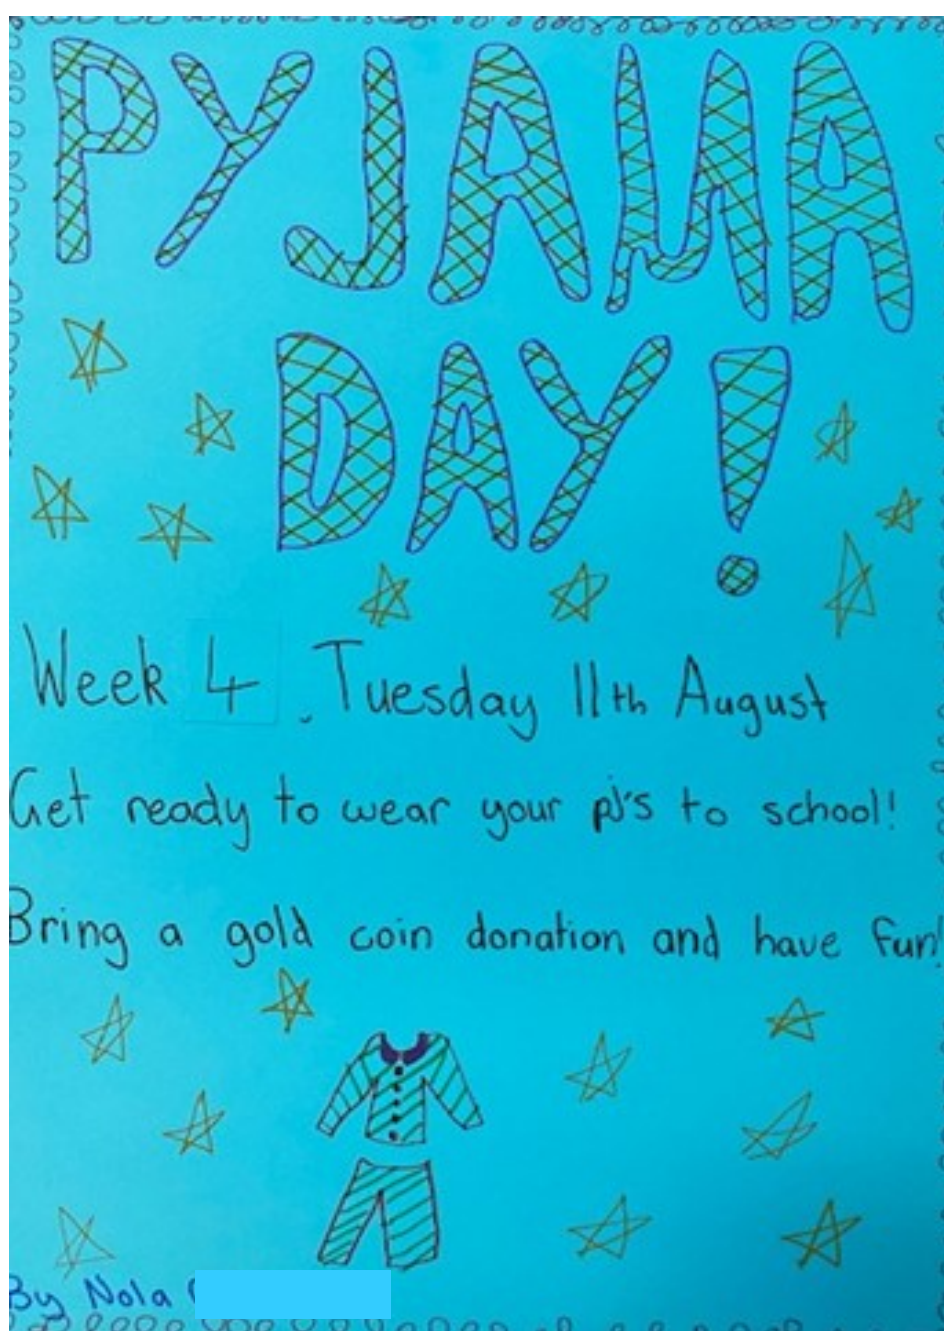 PYJAMA
DAY!
Week 4. Tuesday 11th August
Get ready to wear your pj's to school!
Bring a gold coin donation and have fun!
By Nola